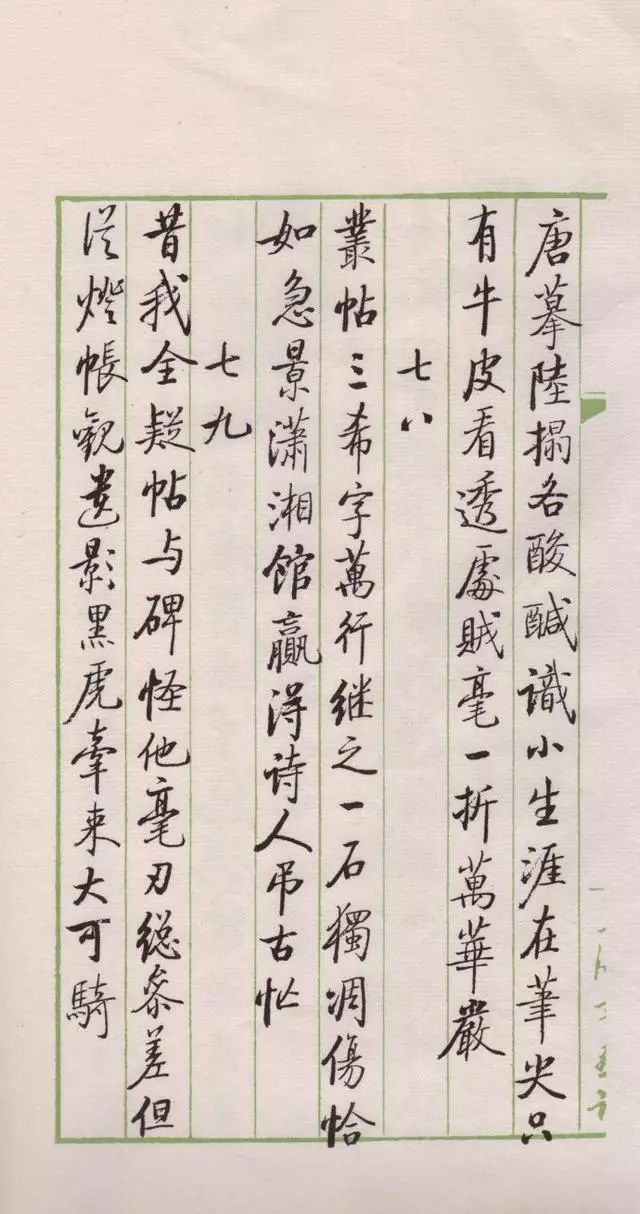 唐摹陸搨各酸醎識小生涯在筆尖只
有牛皮看透處賊毫一折萬華嚴
七八
叢帖三希字萬行继之一石獨凋傷恰
如急景潇湘館赢得诗人吊古忙
七九
昔我全疑帖与碑怪他毫刃総参差但
从燈帳觀遺影黑虎牽来大可騎